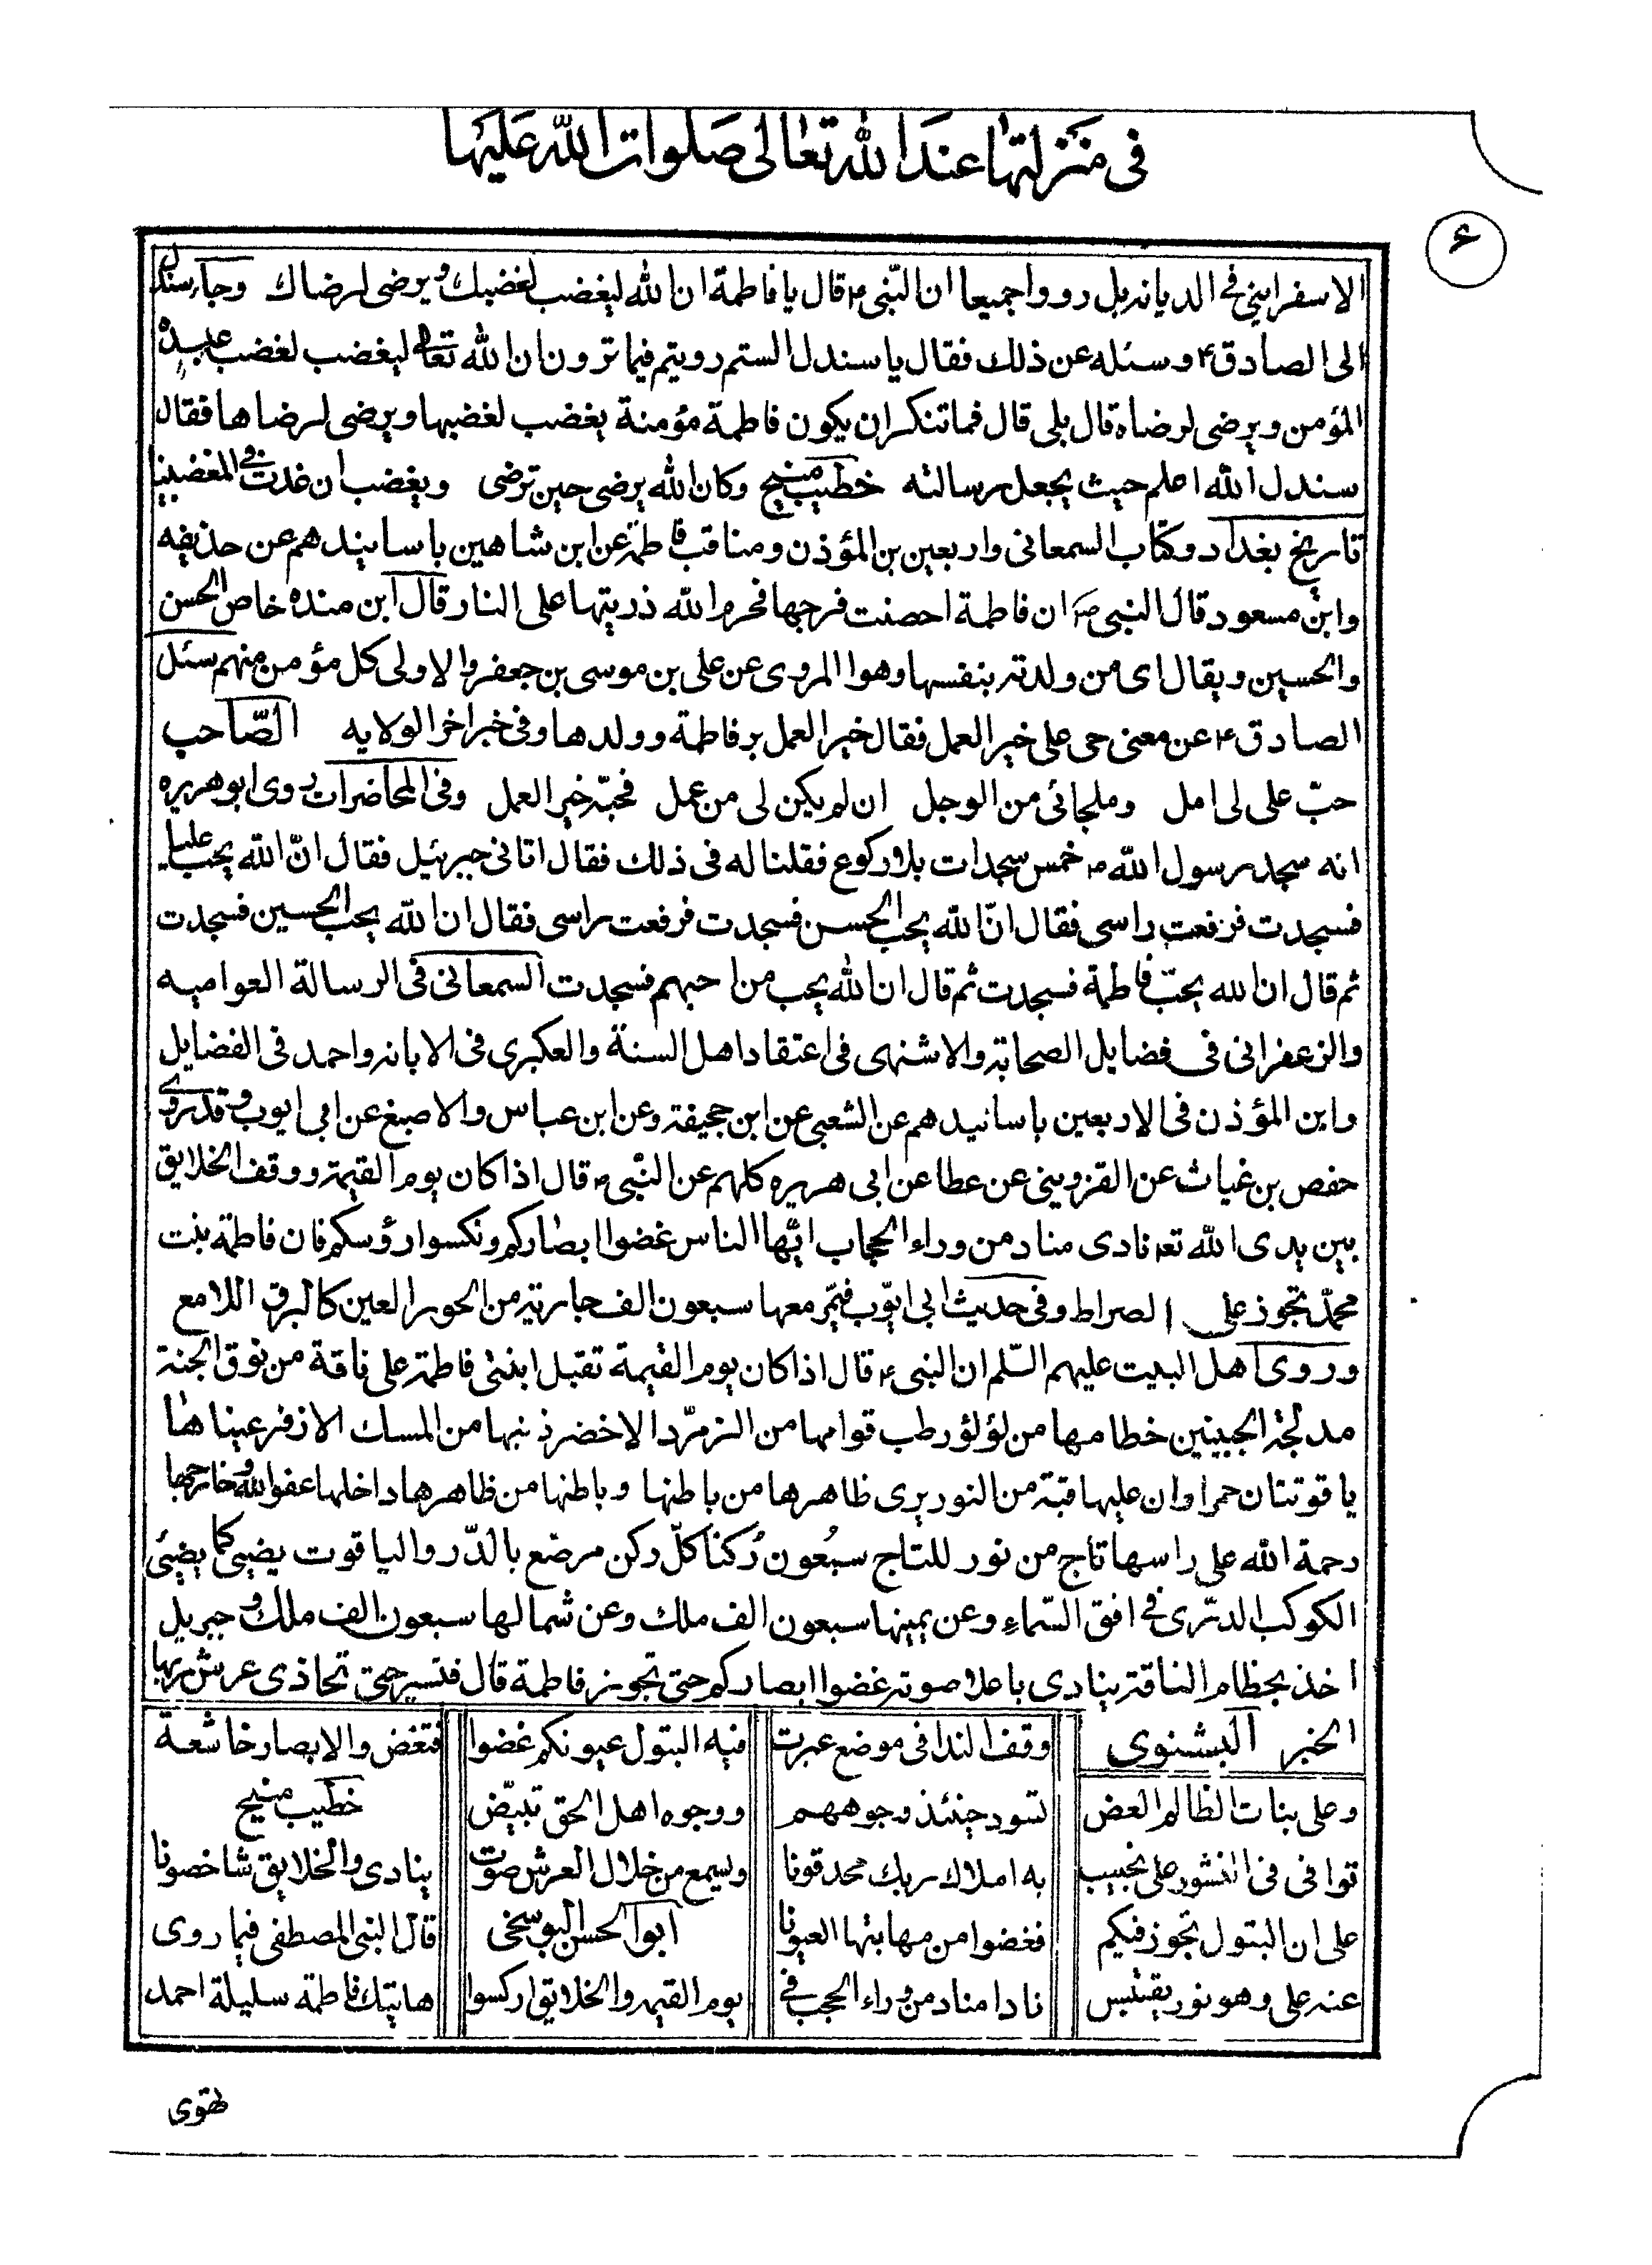 في منزلتها عند الله تعالى صلوات الله عليها
۶
الاسفرايني في الديانة بل رووا جميعا ان النّبي ص قال يا فاطمة ان الله ليغضب لغضبك ويرضى لرضاك وجاء سندل
الى الصادق ع وسئله عن ذلك فقال يا سندل الستم رويتم فيما تروون ان الله تعالى ليغضب لغضب عبده
المؤمن ويرضى لرضاه قال بلى قال فما تنكر ان يكون فاطمة مؤمنة يغضب لغضبها ويرضى لرضاها فقال
سندل الله اعلم حيث يجعل رسالته خطيب منبج وكان الله يرضى حين ترضى ويغضب ان غدت في المغضبينا
تاريخ بغداد وكتاب السمعاني واربعين بن المؤذن ومناقب فاطمة عن ابن شاهين باسانيدهم عن حذيفه
وابن مسعود قال النبي ص ان فاطمة احصنت فرجها فحرم الله ذريتها على النار قال ابن منده خاص الحسن
والحسين ويقال اي من ولدته بنفسها وهو المروي عن علي بن موسى بن جعفر والاولى كل مؤمن منهم سئل
الصادق ع عن معنى حي على خير العمل فقال خير العمل بر فاطمة وولدها وفي خبر اخر الولايه الصّاحب
حبّ علي لي امل وملجائي من الوجل ان لم يكن لي من عمل فحبّه خير العمل وفي المحاضرات روى ابو هريره
انه سجد رسول الله ص خمس سجدات بلا ركوع فقلنا له في ذلك فقال اتاني جبرئيل فقال انّ الله يحب عليا
فسجدت فرفعت راسي فقال انّ الله يحب الحسن فسجدت فرفعت راسي فقال ان الله يحب الحسين فسجدت
ثم قال ان الله يحبّ فاطمة فسجدت ثم قال ان الله يحب من احبهم فسجدت السمعاني في الرسالة العواميه
والزعفراني في فضايل الصحابة والاشنهي في اعتقاد اهل السنة والعكبري في الابانه واحمد في الفضايل
وابن المؤذن في الاربعين باسانيدهم عن الشعبي عن ابن جحيفة وعن ابن عباس والاصبغ عن ابي ايوب وقد روى
حفص بن غياث عن القزويني عن عطا عن ابي هريره كلهم عن النّبي ص قال اذا كان يوم القيمة ووقف الخلايق
بين يدي الله تعه نادى مناد من وراء الحجاب ايّها الناس غضوا ابصاركم ونكسوا رؤسكم فان فاطمة بنت
محمدّ تجوز على الصراط وفي حديث ابي ايّوب فتمّر معها سبعون الف جارية من الحور العين كالبرق اللامع
وروى اهل البيت عليهم السّلم ان النبي ص قال اذا كان يوم القيمة تقبل ابنتي فاطمة على ناقة من نوق الجنة
مدلجة الجبينين خطامها من لؤلؤ رطب قوامها من الزمرّد الاخضر ذنبها من المسك الاذفر عيناها
ياقوتتان حمراوان عليها قبّة من النور يرى ظاهرها من باطنها وباطنها من ظاهرها داخلها عفو الله وخارجها
رحمة الله على راسها تاج من نور للتاج سبُعون رُكنا كلّ ركن مرصّع بالدّر والياقوت يضيئ كما يضيئ
الكوكب الدرّي في افق السّماء وعن يمينها سبعون الف ملك وعن شمالها سبعون الف ملك وجبريل
اخذ بخطام الناقة ينادي باعلا صوته غضوا ابصاركم حتى تجوز فاطمة قال فتسير حتى تحاذي عرش ربها
الخبر البشنوي وقف الندا في موضع عبرت فيه البتول عيونكم غضوا فتغض والابصار خاشعة
وعلى بنات الظالم العض لتسود حينئذ وجوههم ووجوه اهل الحق تبيضّ خطيب منبج
توافى في النشور على نجيب به املاك ربك محدقونا ويسمع من خلال العرش صوت ينادي والخلايق شاخصونا
على ان البتول تجوز فيكم فغضوا من مهابتها العيونا ابو الحسن البوسنجي قال النبي المصطفى فيما روى
عنه علي وهو نور يقتبس نادا مناد من وراء الحجب في يوم القيمه والخلايق اركسوا هاتيك فاطمة سليلة احمد
تهوى